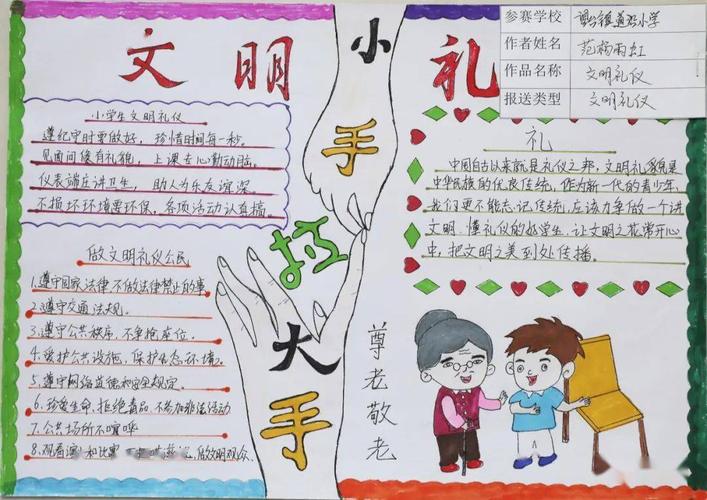 文明礼
小手拉大手
参赛学校 小学
作者姓名 雨虹
作品名称 文明礼仪
报送类型 文明礼仪
小学生文明礼仪
遵纪守时要做好，珍惜时间每一秒。
见面问候有礼貌，上课专心勤动脑。
仪表端庄讲卫生，助人为乐友谊深。
不损坏环境要环保，各项活动认真搞。
做文明礼仪公民
1.遵守国家法律不做法律禁止的事
2.遵守交通法规。
3.遵守公共秩序，不争抢座位。
4.爱护公共设施，保护生态环境。
5.遵守网络道德和安全规定。
6.珍爱生命，拒绝毒品，不参加非法活动
7.公共场所不喧哗
8.观看演 和比赛 做文明观众
礼
中国自古以来就是礼仪之邦，文明礼貌是
中华民族的优良传统，作为新一代的青少年，
我们更不能忘记传统，应该力争做一个讲
文明，懂礼仪的好学生，让文明之花常开心
中，把文明之美到处传播。
尊老敬老